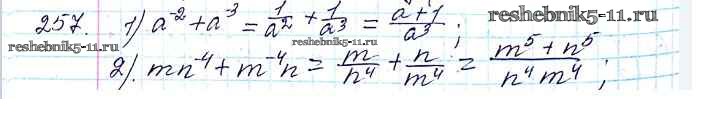 257. 1) a⁻² + a⁻³ = 1/a² + 1/a³ = a+1/a³ ; reshebnik5-11.ru
reshebnik5-11.ru
2). mn⁻⁴ + m⁻⁴n = m/n⁴ + n/m⁴ = m⁵ + n⁵/n⁴m⁴ ;